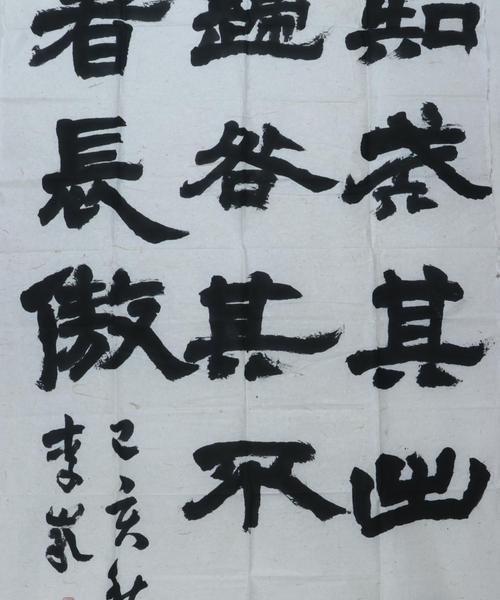 知其出
咎其不
者長傲
己亥秋
李